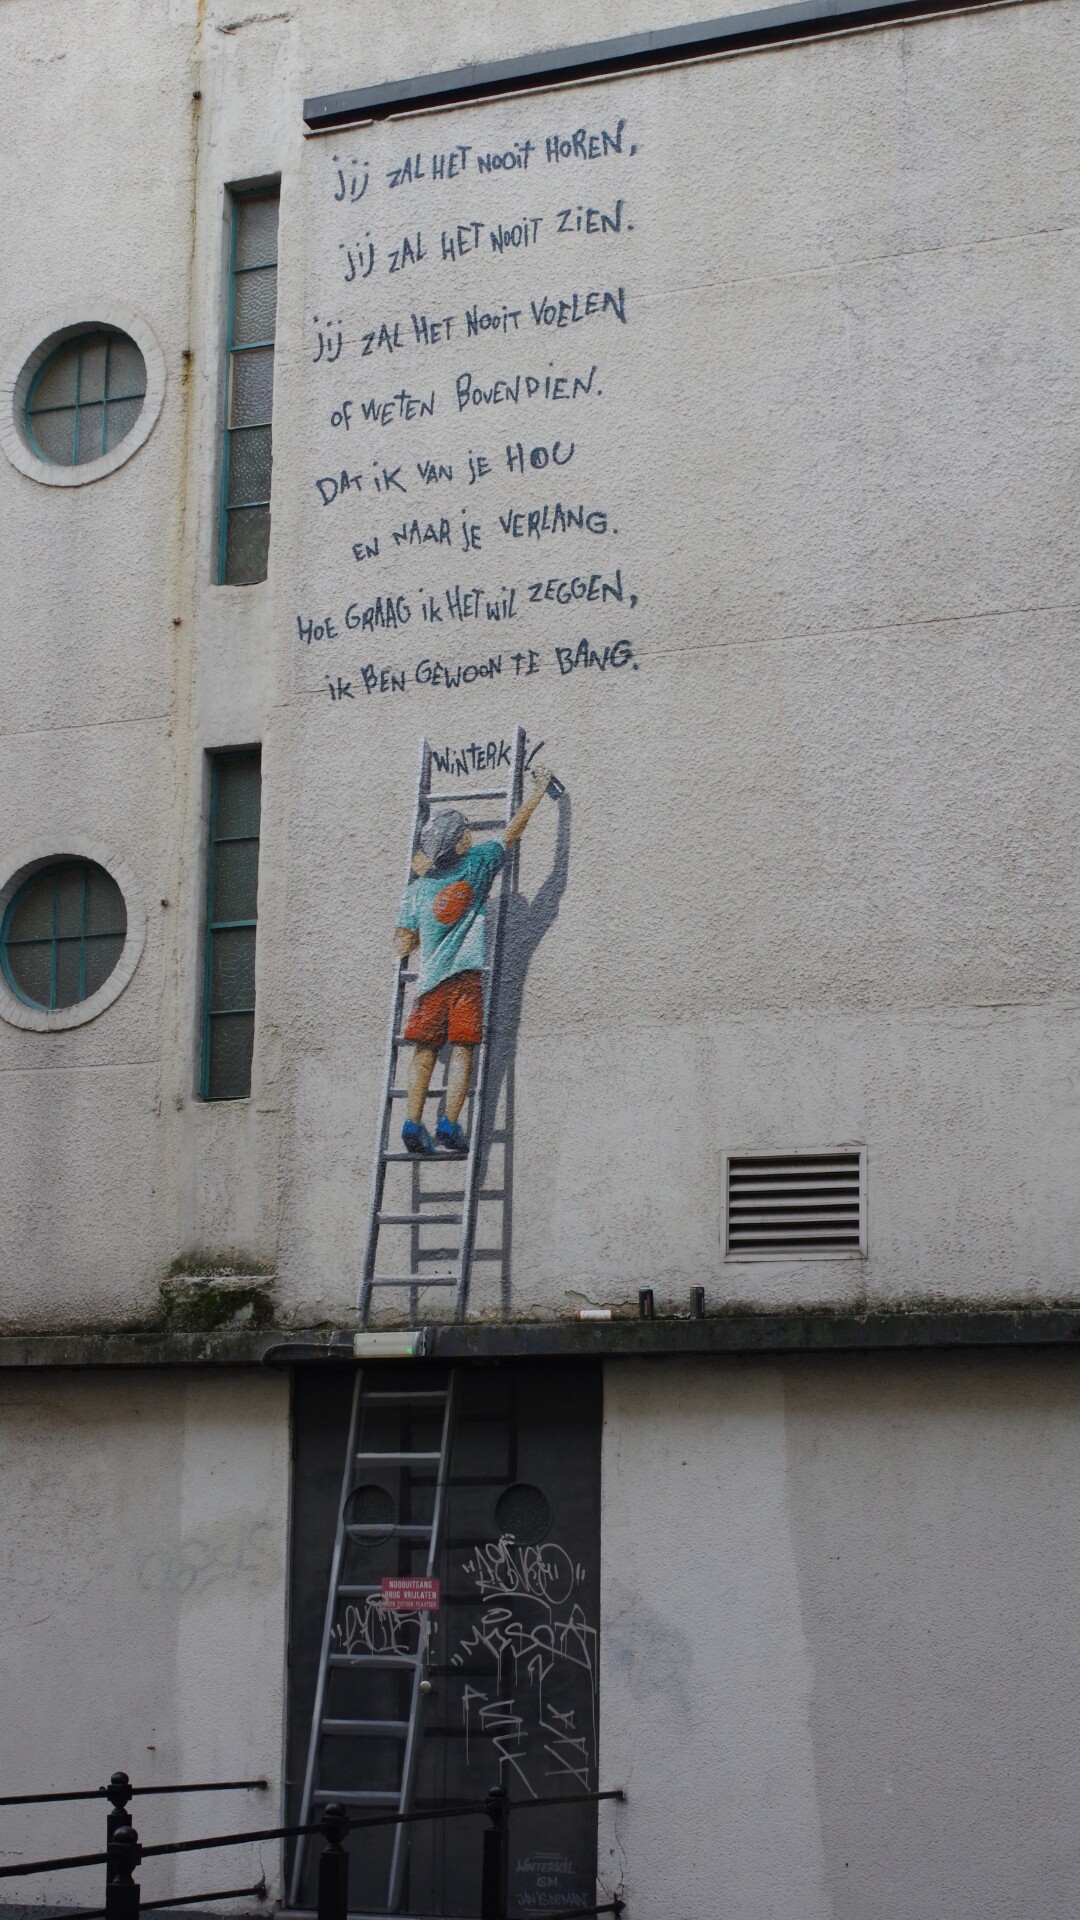 jij ZAL HET NOOit HOREN,
jij ZAL HET NOOIT ZiEN.
jij ZAL HET NOOiT VOELEN
OF WETEN BOVENDIEN.
DAT iK VAN jE HOU
EN NAAR jE VERLANG.
HOE GRAAG ik HET wil ZEGGEN,
ik BEN GEWOON TE BANG.
WiNTERKil
NOODUITGANG
DEUG VRIJLATEN
WINTERKIL
ISM
JAN IS DE MAN